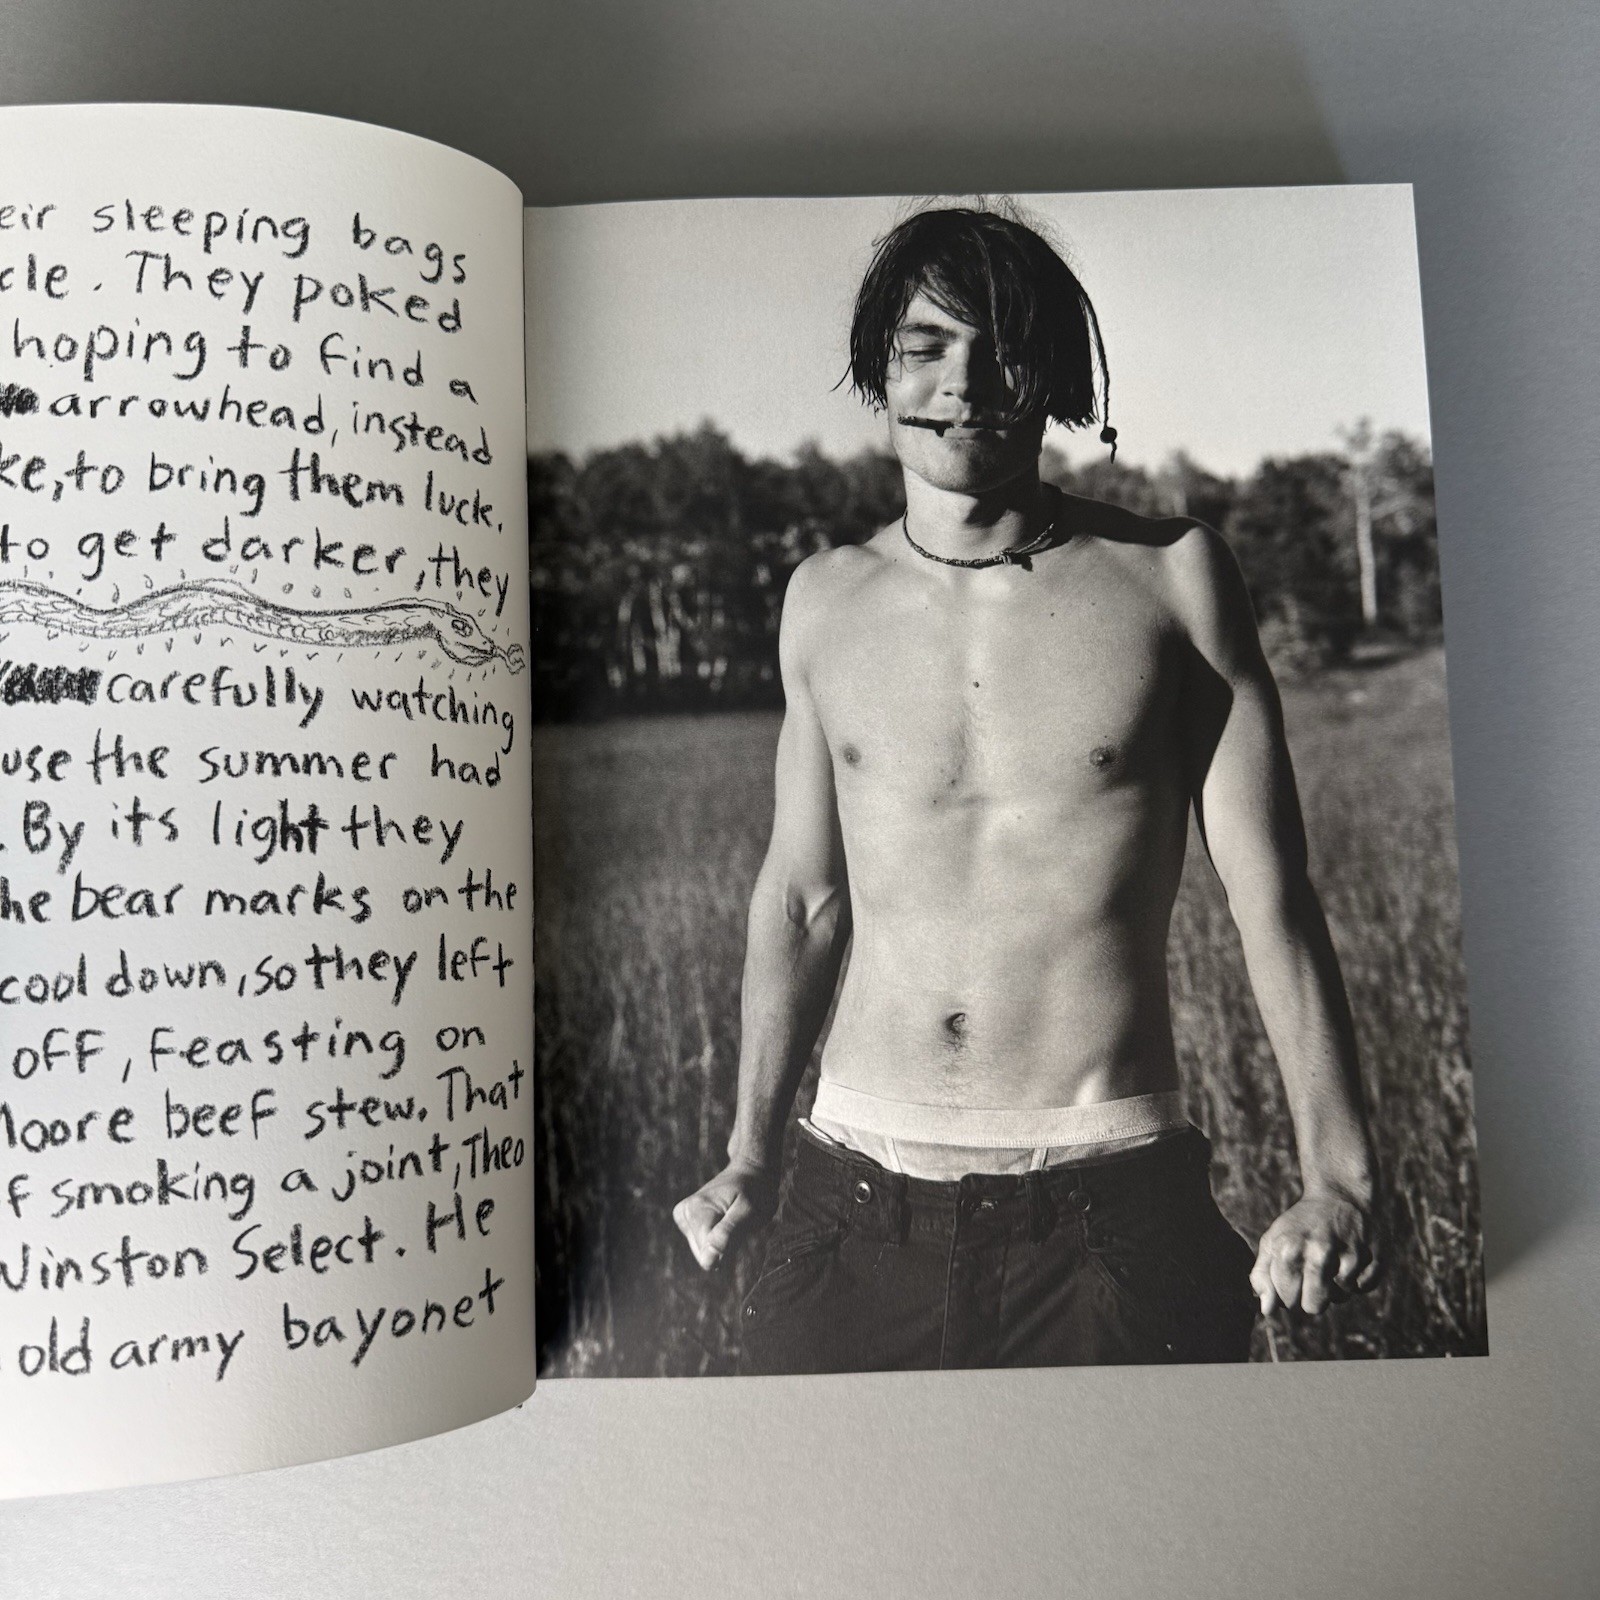 eir sleeping bags
cle. They poked
hoping to find a
arrowhead, instead
ke, to bring them luck.
to get darker, they
carefully watching
use the summer had
. By its light they
he bear marks on the
cool down, so they left
off, feasting on
Moore beef stew. That
f smoking a joint, Theo
Winston Select. He
old army bayonet